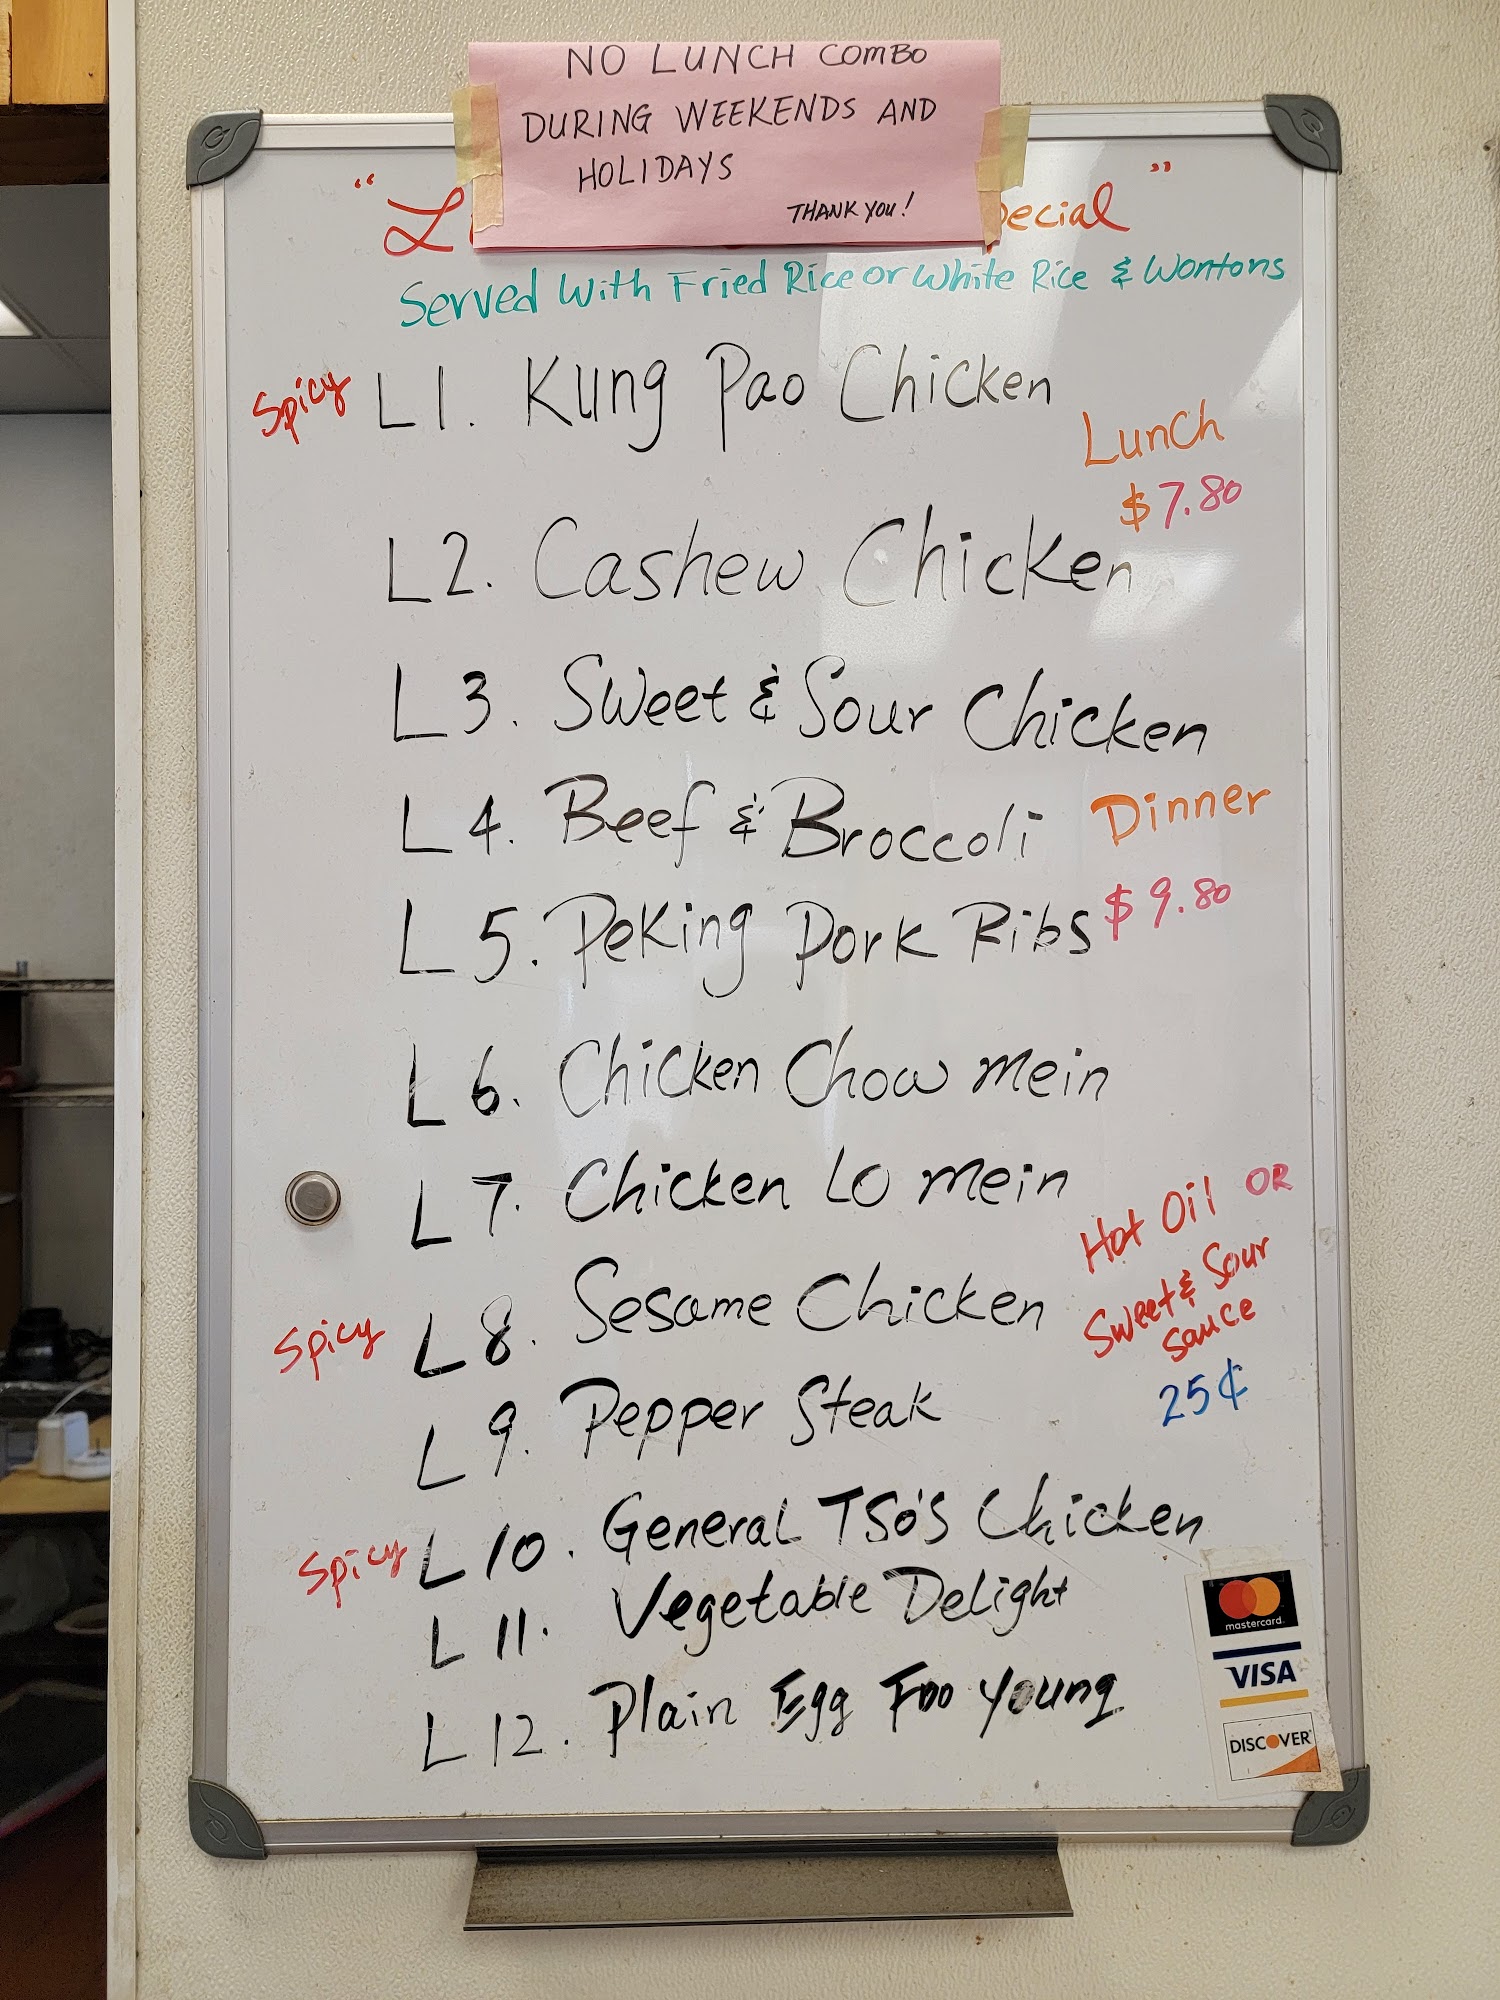 NO LUNCH COMBO
DURING WEEKENDS AND
HOLIDAYS
THANK YOU!
"
"
Served With Fried Rice or White Rice & Wontons
Spicy L1. Kung Pao Chicken
Lunch
$7.80
L2. Cashew Chicken
L3. Sweet & Sour Chicken
L4. Beef & Broccoli
Dinner
$9.80
L5. Peking Pork Ribs
L6. Chicken Chow Mein
L7. Chicken Lo Mein
Hot Oil OR
Sweet & Sour
Sauce
25¢
Spicy L8. Sesame Chicken
L9. Pepper Steak
Spicy L10. General TSO'S Chicken
L11. Vegetable Delight
L12. Plain Egg Foo Young
mastercard
VISA
DISCOVER